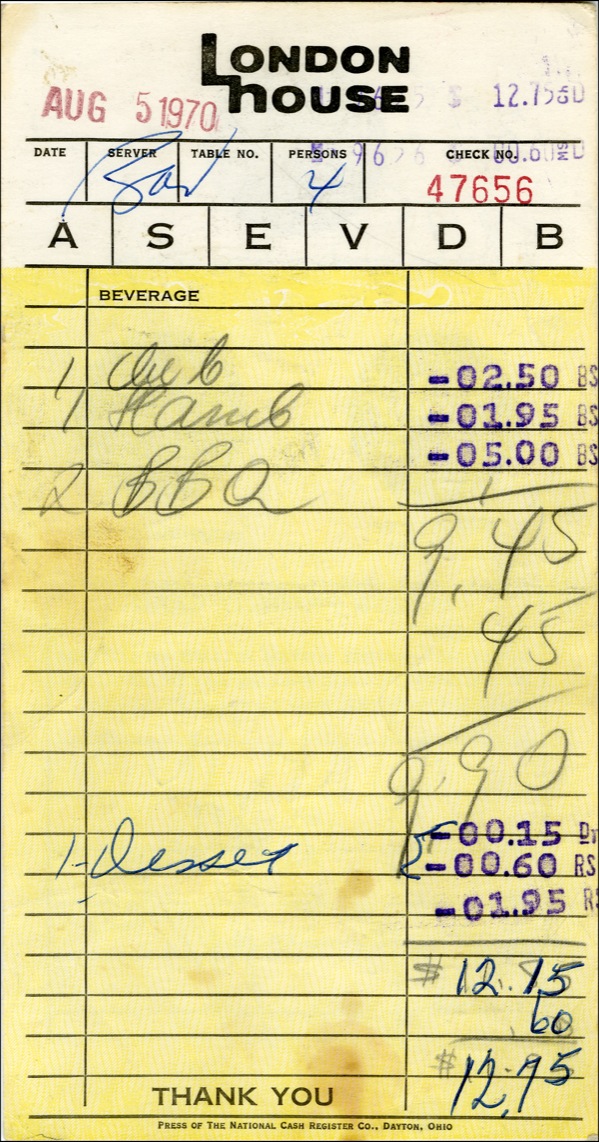 LONDON
HOUSE
AUG 5 1970
12.75
DATE SERVER TABLE NO. PERSONS CHECK NO.
4 47656
A S E V D B
BEVERAGE
1 Club -02.50 BS
1 Hamb -01.95 BS
2 BBQ -05.00 BS
9.45
45
9.90
-00.15
1-Dessert -00.60 RS
-01.95
$12.15
60
$12.75
THANK YOU
PRESS OF THE NATIONAL CASH REGISTER CO., DAYTON, OHIO